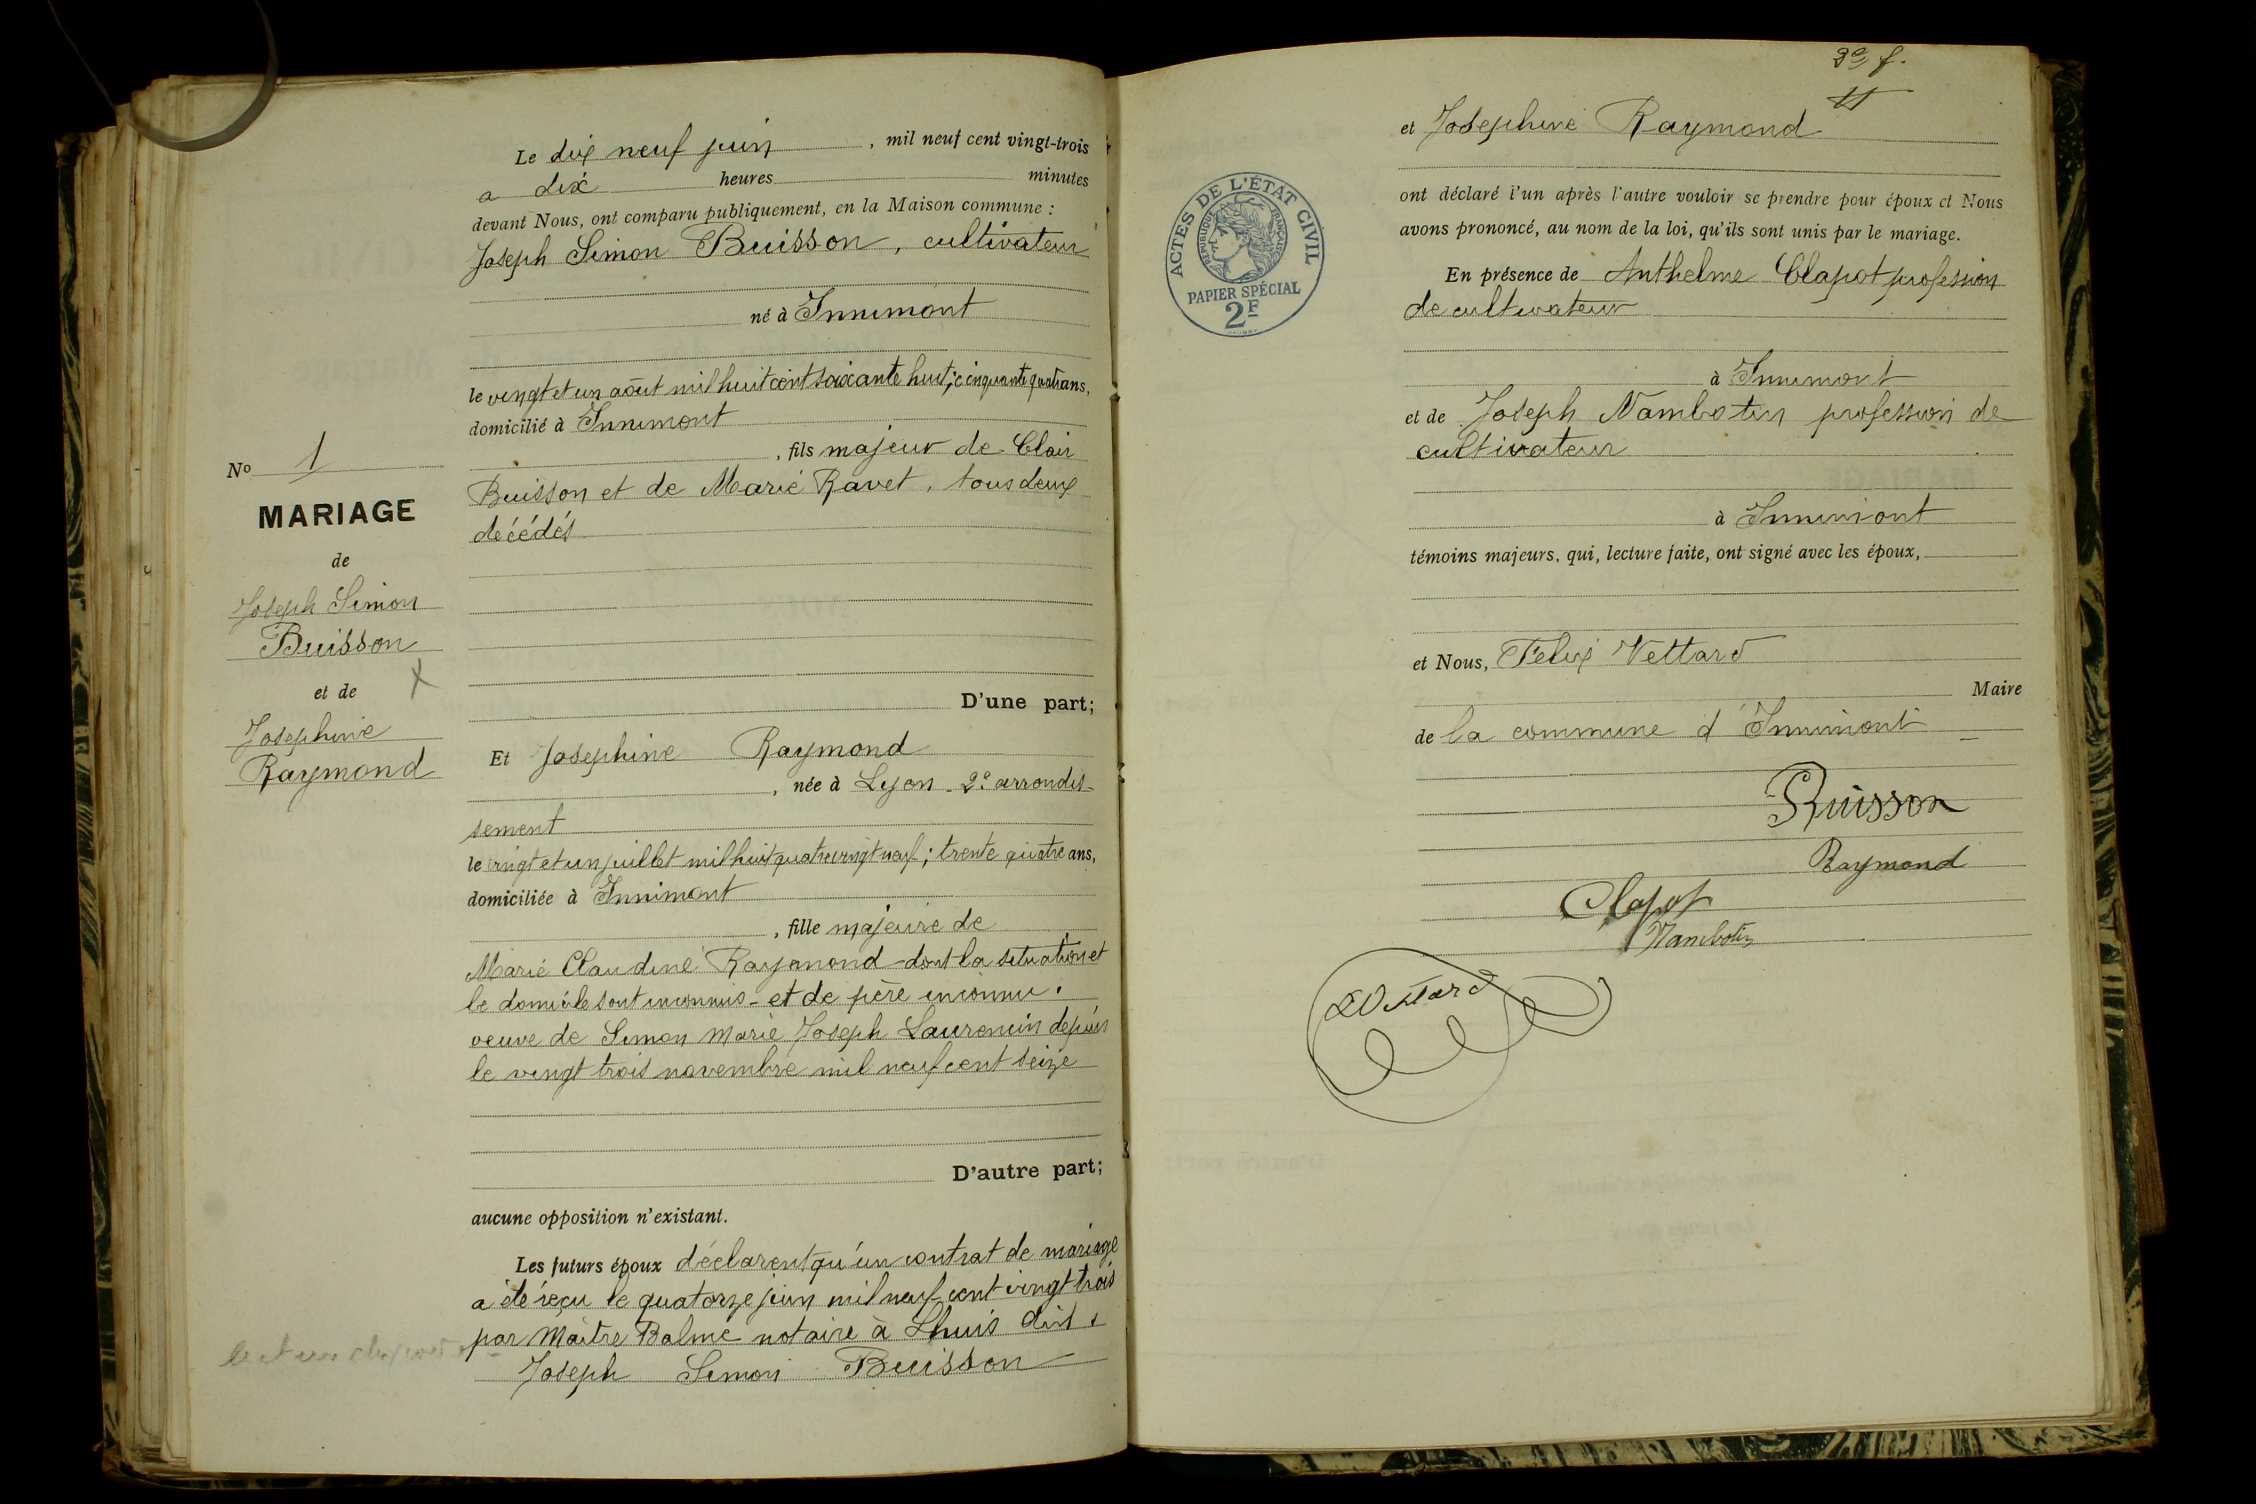 Le dix neuf juin, mil neuf cent vingt-trois
a dix heures minutes
devant Nous, ont comparu publiquement, en la Maison commune :
Joseph Simon Buisson, cultivateur
né à Innimont
le vingt et un août mil huit cent soixante huit; cinquante quatre ans,
domicilié à Innimont
, fils majeur de Clair
Buisson et de Marie Ravet, tous deux
décédés
No 1
MARIAGE
de
Joseph Simon
Buisson
et de
Josephine
Raymond
D'une part;
Et Josephine Raymond
, née à Lyon - 2e arrondis-
sement
le vingt et un juillet mil huit quatre vingt neuf; trente quatre ans,
domiciliée à Innimont
, fille majeure de
Marie Claudine Raymond - dont la situation et
le domicile sont inconnus - et de père inconnu.
veuve de Simon Marie Joseph Laurencin depuis
le vingt trois novembre mil neuf cent seize
D'autre part;
aucune opposition n'existant.
Les futurs époux déclarent qu'un contrat de mariage
a été reçu le quatorze juin mil neuf cent vingt trois
par Maître Balme notaire à Lhuis
Joseph Simon Buisson
et Josephine Raymond
ont déclaré l'un après l'autre vouloir se prendre pour époux et Nous
avons prononcé, au nom de la loi, qu'ils sont unis par le mariage.
ACTES DE L'ÉTAT CIVIL
RÉPUBLIQUE FRANÇAISE
PAPIER SPÉCIAL
2F
En présence de Anthelme Clapot profession
de cultivateur
à Innimont
et de Joseph Nambotin profession de
cultivateur
à Innimont
témoins majeurs, qui, lecture faite, ont signé avec les époux,
et Nous, Felix Vettard
Maire
de la commune d'Innimont
Buisson
Raymond
Clapot
Nambotin
Vettard